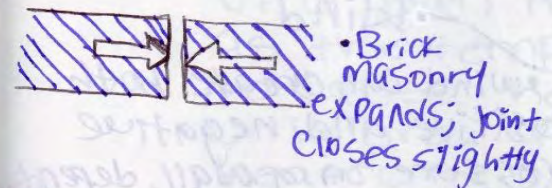 • Brick
masonry
expands; joint
closes slightly